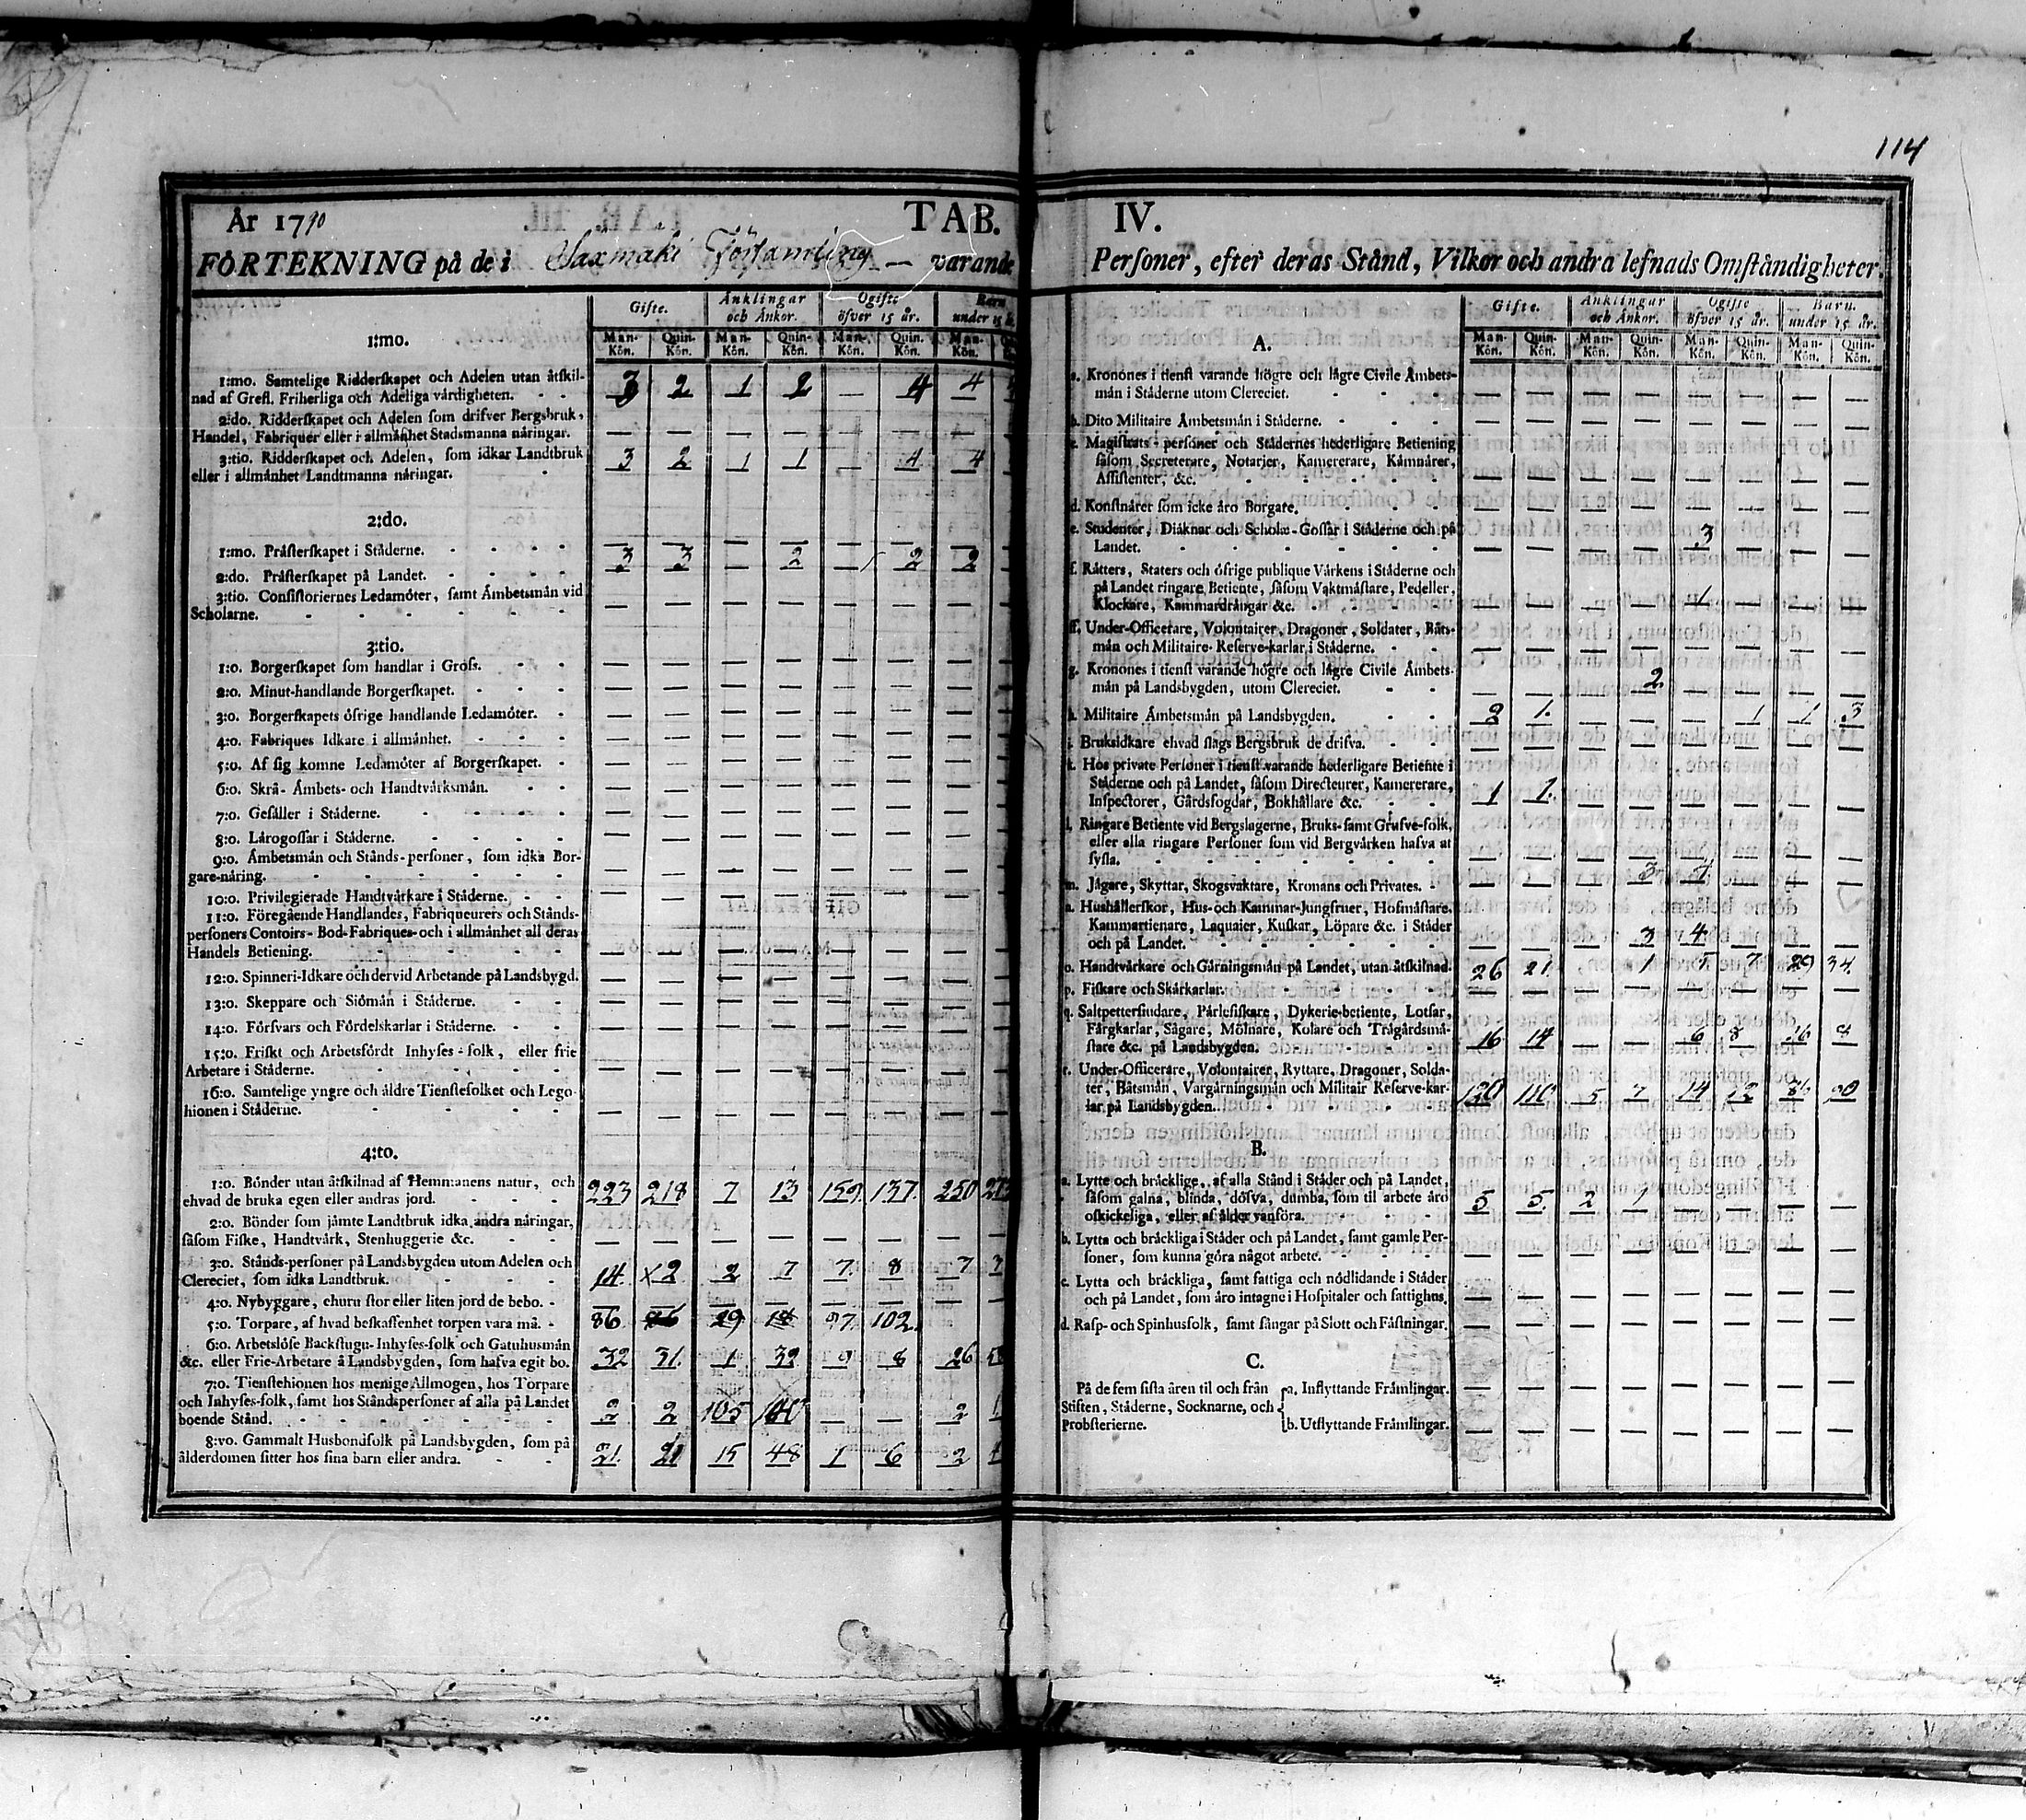 114
År 1790 TAB. IV.
FÖRTEKNING på de i Saxmäki Församling — varande Personer, efter deras Stånd, Vilkor och andra lefnads Omständigheter.
Gifte. Änklingar och Änkor. Ogifte öfver 15 år. Barn under 15
Man-Kön. Quin-Kön. Man-Kön. Quin-Kön. Man-Kön. Quin-Kön. Man-Kön.
1:mo.
1:mo. Samtelige Ridderskapet och Adelen utan åtskil- 3 2 1 2 — 4 4
nad af Grefl. Friherliga och Adeliga värdigheten. - -
2:do. Ridderskapet och Adelen som drifver Bergsbruk, — — — — — — —
Handel, Fabriquer eller i allmänhet Stadsmanna näringar.
3:tio. Ridderskapet och Adelen, som idkar Landtbruk 3 2 1 1 — 4 4
eller i allmänhet Landtmanna näringar.
2:do.
1:mo. Prästerskapet i Städerne. - - - - — — — — — — —
2:do. Prästerskapet på Landet. - - - - 3 3 — 2 — 2 2
3:tio. Consistoriernes Ledamöter, samt Ämbetsmän vid
Scholarne. - - - - - — — — — — — —
3:tio.
1:o. Borgerskapet som handlar i Gross. - - — — — — — — —
2:o. Minut-handlande Borgerskapet. - - - - — — — — — — —
3:o. Borgerskapets öfrige handlande Ledamöter. - — — — — — — —
4:o. Fabriques Idkare i allmänhet. - - - - — — — — — — —
5:o. Af sig komne Ledamöter af Borgerskapet. - — — — — — — —
6:o. Skrå- Ämbets- och Handtvärksmän. - - — — — — — — —
7:o. Gesäller i Städerne. - - - - — — — — — — —
8:o. Lärogossar i Städerne. - - - - — — — — — — —
9:o. Ämbetsmän och Stånds-personer, som idka Bor-
gare-näring. - - - - - - — — — — — — —
10:o. Privilegierade Handtvärkare i Städerne. - - — — — — — — —
11:o. Föregående Handlandes, Fabriqueurers och Stånds-
personers Contoirs- Bod- Fabriques- och i allmänhet all deras
Handels Betiening. - - - - - — — — — — — —
12:o. Spinneri-Idkare och dervid Arbetande på Landsbygd. — — — — — — —
13:o. Skeppare och Siömän i Städerne. - - — — — — — — —
14:o. Försvars och Fördelskarlar i Städerne. - - — — — — — — —
15:o. Friskt och Arbetsfördt Inhyses-folk, eller frie
Arbetare i Städerne. - - - - - — — — — — — —
16:o. Samtelige yngre och äldre Tienstefolket och Lego-
hionen i Städerne. - - - - - — — — — — — —
4:to.
1:o. Bönder utan åtskilnad af Hemmanens natur, och 223 218 7 13 159 137. 250
ehvad de bruka egen eller andras jord. - - - -
2:o. Bönder som jämte Landtbruk idka andra näringar,
såsom Fiske, Handtvärk, Stenhuggerie &c. - - — — — — — — —
3:o. Stånds-personer på Landsbygden utom Adelen och 14. 2 2 7 7. 8 7
Clereciet, som idka Landtbruk. - - - -
4:o. Nybyggare, ehuru stor eller liten jord de bebo. -
5:o. Torpare, af hvad beskaffenhet torpen vara må. - 86 86 29 18 97 102.
6:o. Arbetslöse Backstugu- Inhyses-folk och Gatuhusmän
&c. eller Frie-Arbetare å Landsbygden, som hafva egit bo. 32 31. 1 39 9 8 26
7:o. Tienstehionen hos menige Allmogen, hos Torpare
och Inhyses-folk, samt hos Ståndspersoner af alla på Landet 2 2 105 140 — — 2
boende Stånd. - - - - - -
8:vo. Gammalt Husbondfolk på Landsbygden, som på 21. 21 15 48 1 6 2
ålderdomen sitter hos sina barn eller andra. - -
Gifte. Änklingar och Änkor. Ogifte öfver 15 år. Barn. under 15 år.
Man-Kön. Quin-Kön. Man-Kön. Quin-Kön. Man-Kön. Quin-Kön. Man-Kön. Quin-Kön.
A.
a. Kronones i tienst varande högre och lägre Civile Ämbets-
män i Städerne utom Clereciet. - - - — — — — — — — —
b. Dito Militaire Ämbetsmän i Städerne. - - - - — — — — — — — —
c. Magistrats-personer och Städernes hederligare Betiening
såsom Secreterare, Notarier, Kamererare, Kämnärer,
Assistenter, &c. - - - - - — — — — — — — —
d. Konstnärer som icke äro Borgare. - - - — — — — — — — —
e. Studenter, Diäknar och Scholæ-Gossar i Städerne och på
Landet. - - - - - — — — — 3 — — —
f. Rätters, Staters och öfrige publique Värkens i Städerne och
på Landet ringare Betiente, såsom Vaktmästare, Pedeller,
Klockare, Kammardrängar &c. - - - — — — — 1 — — —
ff. Under-Officerare, Volontairer, Dragoner, Soldater, Båts-
män och Militaire-Reserve-karlar i Städerne. - - — — — — — — — —
g. Kronones i tienst varande högre och lägre Civile Ämbets-
män på Landsbygden, utom Clereciet. - - — — — 2 — — — —
h. Militaire Ämbetsmän på Landsbygden. - - - 2 1. — — — 1 1 3
i. Bruksidkare ehvad slags Bergsbruk de drifva. - - — — — — — — — —
k. Hos private Personer i tienst varande hederligare Betiente i
Städerne och på Landet, såsom Directeurer, Kamererare,
Inspectorer, Gårdsfogdar, Bokhållare &c. - - 1 1. — — — — — —
l. Ringare Betiente vid Bergslagerne, Bruks- samt Grufve-folk,
eller alla ringare Personer som vid Bergvärken hafva at
sysla. - - - - - — — — — — — — —
m. Jägare, Skyttar, Skogsvaktare, Kronans och Privates. - — — — 3 1 — — —
n. Hushållerskor, Hus- och Kammar-Jungfruer, Hofmästare,
Kammartienare, Laquaier, Kuskar, Löpare &c. i Städer
och på Landet. - - - - - — — — 3 4 — — —
o. Handtvärkare och Gärningsmän på Landet, utan åtskilnad. 26 21. 1 5 7 29 34.
p. Fiskare och Skärkarlar. - - - - — — — — — — — —
q. Saltpettersiudare, Pärlefiskare, Dykerie-betiente, Lotsar,
Färgkarlar, Sågare, Mölnare, Kolare och Trägårdsmä-
stare &c. på Landsbygden. - - - 16 14 — — 6 8
r. Under-Officerare, Volontairer, Ryttare, Dragoner, Solda-
ter, Båtsmän, Vargärningsmän och Militair Reserve-kar-
lar på Landsbygden. - - 120 110 5 7 14 12 86 90
B.
a. Lytte och bräcklige, af alla Stånd i Städer och på Landet,
såsom galna, blinda, döfva, dumba, som til arbete äro
oskickeliga, eller af ålder vanföra. - - - 5 5. 2 1 — — — —
b. Lytta och bräckliga i Städer och på Landet, samt gamle Per-
soner, som kunna göra något arbete. - - — — — — — — — —
c. Lytta och bräckliga, samt fattiga och nödlidande i Städer
och på Landet, som äro intagne i Hospitaler och fattighus. — — — — — — — —
d. Rasp- och Spinhusfolk, samt fångar på Slott och Fästningar. — — — — — — — —
C.
På de fem sista åren til och från { a. Inflyttande Främlingar. — — — — — — — —
Stiften, Städerne, Socknarne, och
Probsterierne. b. Utflyttande Främlingar. — — — — — — — —